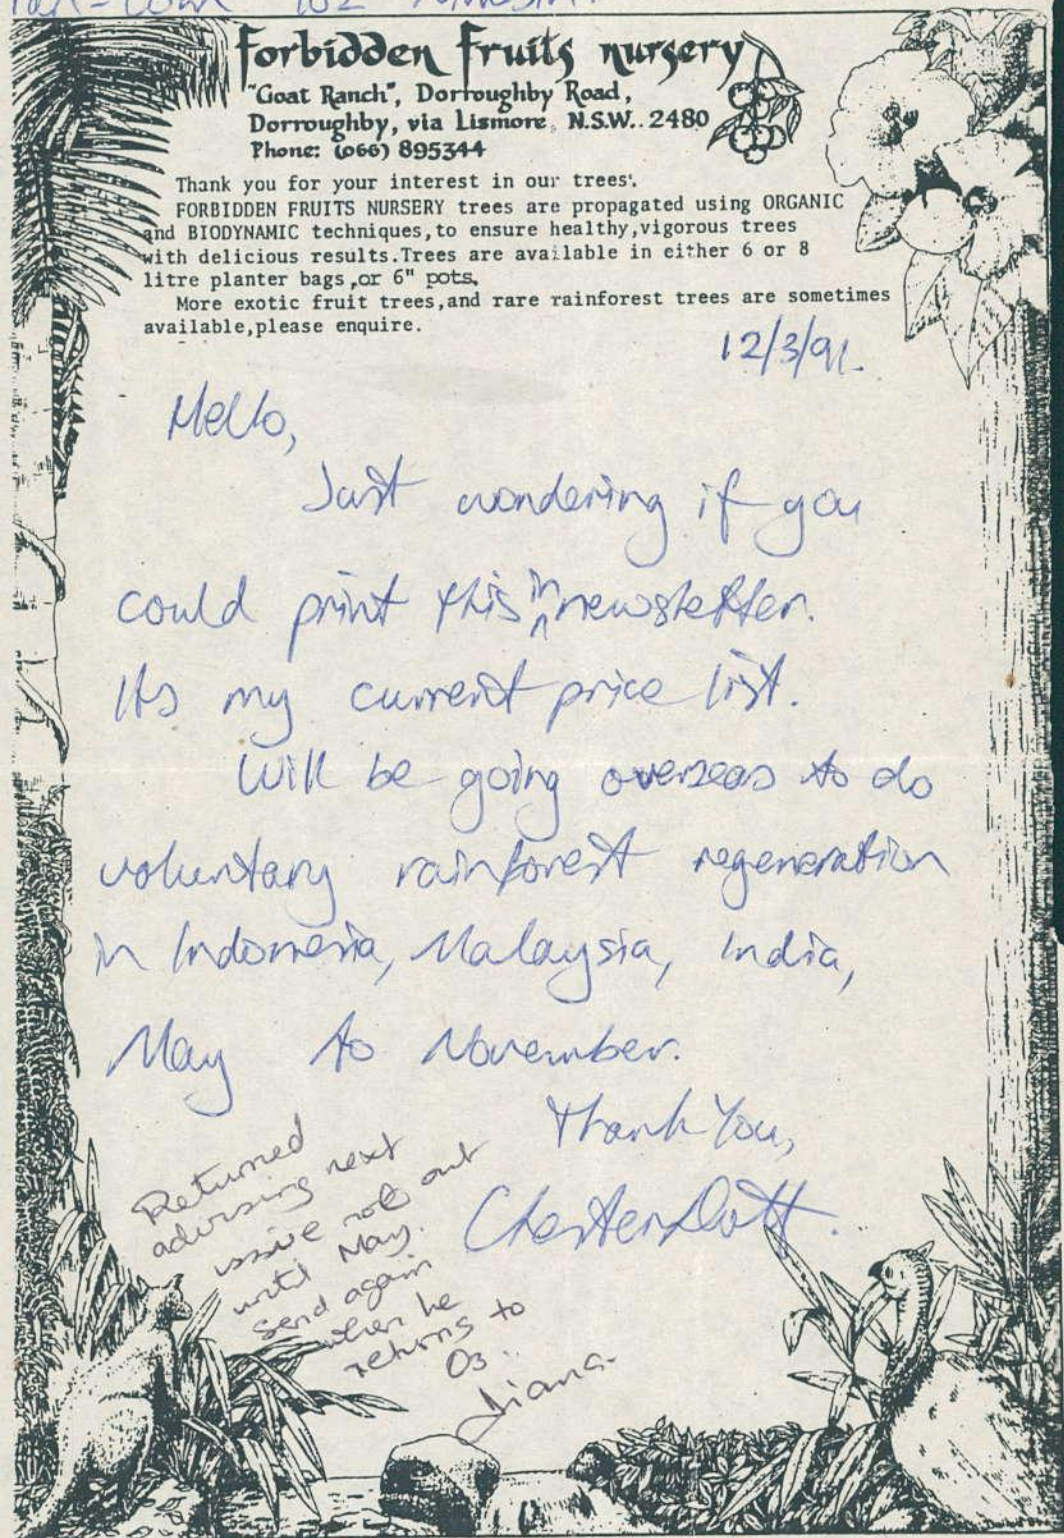 forbidden fruits nursery
"Goat Ranch", Dorroughby Road,
Dorroughby, via Lismore, N.S.W. 2480
Phone: (066) 895344
Thank you for your interest in our trees.
FORBIDDEN FRUITS NURSERY trees are propagated using ORGANIC
and BIODYNAMIC techniques,to ensure healthy,vigorous trees
with delicious results.Trees are available in either 6 or 8
litre planter bags,or 6" pots.
More exotic fruit trees,and rare rainforest trees are sometimes
available,please enquire.
12/3/91.
Hello,
Just wondering if you
could print this in newsletter.
Its my current price list.
Will be going overseas to do
voluntary rainforest regeneration
in Indonesia, Malaysia, India,
May to November.
Thank You,
Chester Dott.
Returned
advising next
issue not out
until May.
send again
when he
returns to
Oz.
Diana.